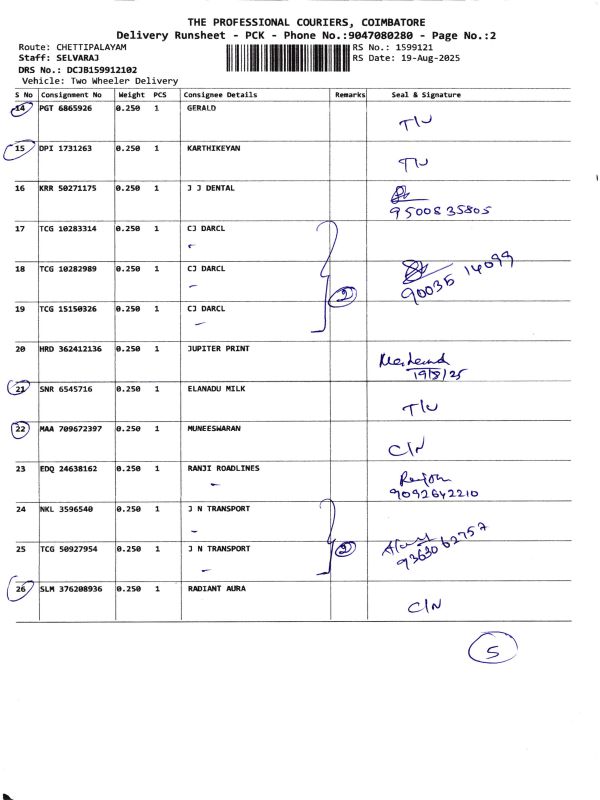 THE PROFESSIONAL COURIERS, COIMBATORE
Delivery Runsheet - PCK - Phone No.:9047080280 - Page No.:2
Route: CHETTIPALAYAM RS No.: 1599121
Staff: SELVARAJ RS Date: 19-Aug-2025
DRS No.: DCJB159912102
Vehicle: Two Wheeler Delivery
S No Consignment No Weight PCS Consignee Details Remarks Seal & Signature
14 PGT 6865926 0.250 1 GERALD
T/U
15 DPI 1731263 0.250 1 KARTHIKEYAN
T/U
16 KRR 50271175 0.250 1 J J DENTAL
9500835805
17 TCG 10283314 0.250 1 CJ DARCL
18 TCG 10282989 0.250 1 CJ DARCL
90035 14099
2
19 TCG 15150326 0.250 1 CJ DARCL
20 HRD 362412136 0.250 1 JUPITER PRINT
19/8/25
21 SNR 6545716 0.250 1 ELANADU MILK
T/U
22 MAA 709672397 0.250 1 MUNEESWARAN
C/N
23 EDQ 24638162 0.250 1 RANJI ROADLINES
9092642210
24 NKL 3596540 0.250 1 J N TRANSPORT
25 TCG 50927954 0.250 1 J N TRANSPORT
2
9363062757
26 SLM 376208936 0.250 1 RADIANT AURA
C/N
5